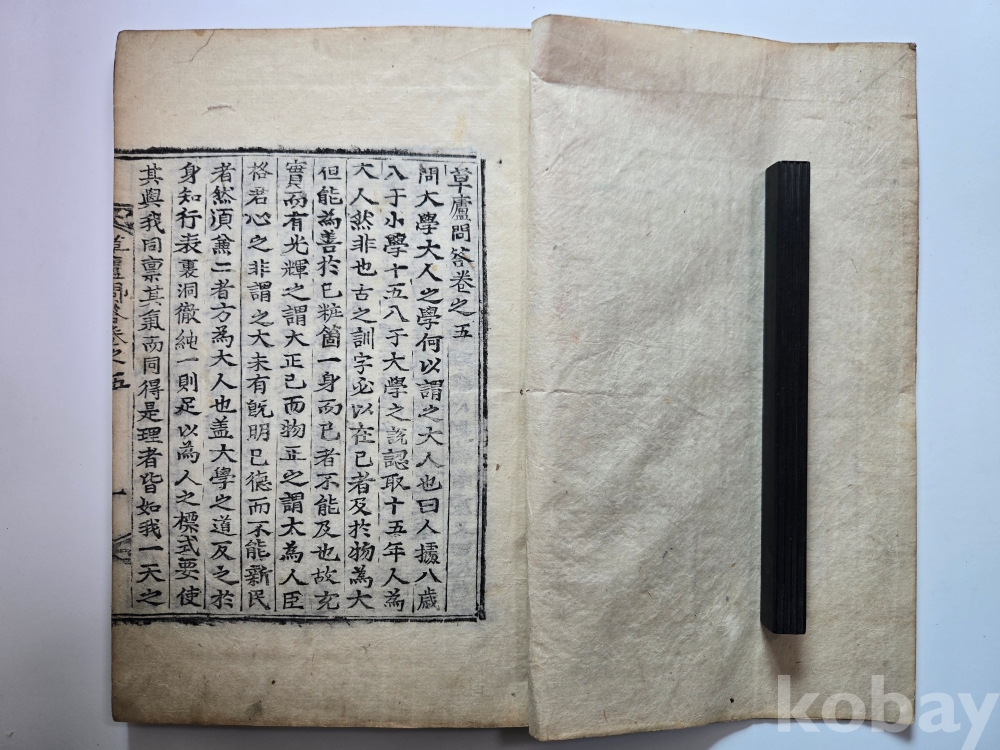 草廬問答卷之五
問大學大人之學何以謂之大人也曰人據八歲
入于小學十五入于大學之說認取十五年人為
大人然非也古之訓字必以在己者及於物為大
但能為善於已粧箇一身而已者不能及也故充
實而有光輝之謂大正己而物正之謂大為人臣
格君心之非謂之大未有旣明己德而不能新民
者然須兼二者方為大人也盖大學之道反之於
身知行表裏洞徹純一則足以為人之標式要使
其與我同禀其氣而同得是理者皆如我一天之
草廬問答卷之五 一
kobay